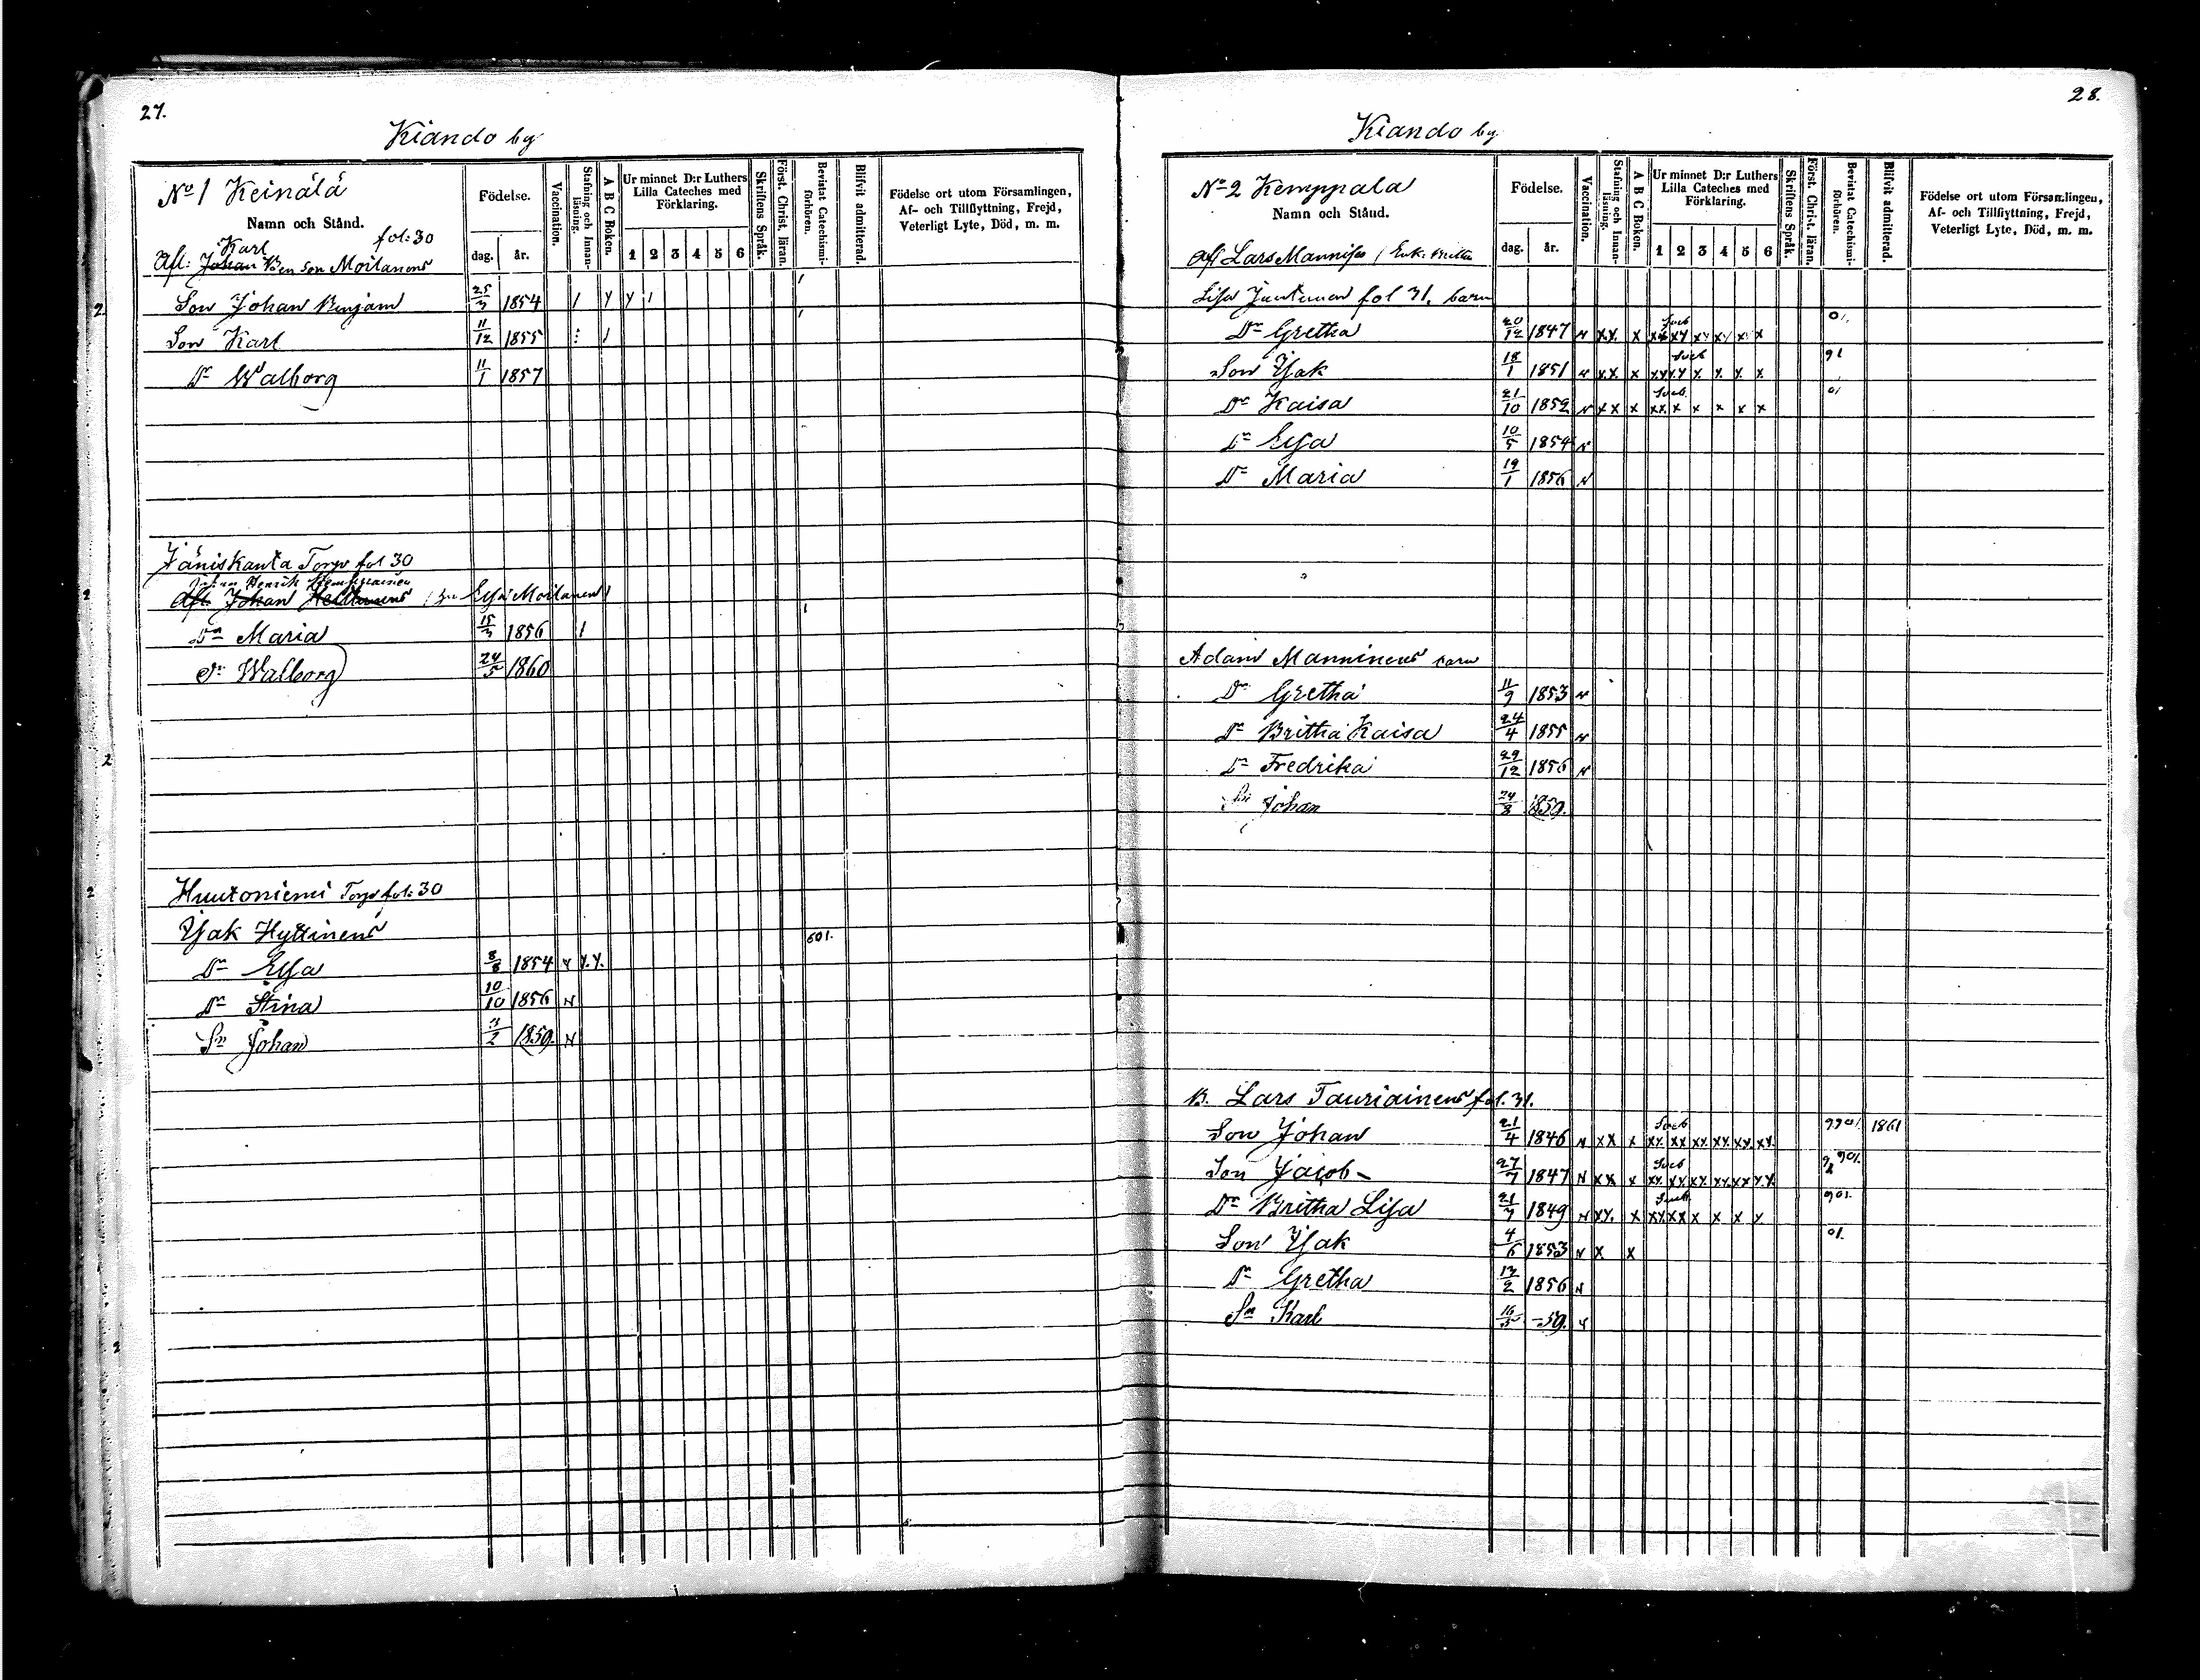 27.
Kiando by
No 1 Keinälä
Namn och Stånd.
Födelse.
dag.
år.
Vaccination.
Stafning och Innanläsning.
A B C Boken.
Ur minnet D:r Luthers Lilla Cateches med Förklaring.
1 2 3 4 5 6
Skriftens Språk.
Först. Christ. läran.
Bevistat Catechismiförhören.
Blifvit admitterad.
Födelse ort utom Församlingen, Af- och Tillflyttning, Frejd, Veterligt Lyte, Död, m. m.
Karl fol: 30
Afl: Johan Ben son Moilanens
Son Johan Benjam 25/3 1854
Son Karl 11/12 1855
Dr Walborg 11/1 1857
Jäniskanta Torp fol 30
Johan Henrik
Afl. Johan Elsa Moilanen
Dr Maria 15/3 1856
Dr Walborg 24/5 1860
Huutoniemi Torp fol: 30
Isak Hyttinens 601.
Dr Elsa 8/8 1854
Dr Stina 10/10 1856
Sn Johan 11/2 1859.
28.
Kiando by
No 2 Kemppala
Namn och Stånd.
Födelse.
dag.
år.
Vaccination.
Stafning och Innanläsning.
A B C Boken.
Ur minnet D:r Luthers Lilla Cateches med Förklaring.
1 2 3 4 5 6
Skriftens Språk.
Först. Christ. läran.
Bevistat Catechismiförhören.
Blifvit admitterad.
Födelse ort utom Församlingen, Af- och Tillflyttning, Frejd, Veterligt Lyte, Död, m. m.
Afl Lars Mannises / Enk: Britta
Lisa Juntunen fol 31. barn
Dr Gretha 20/12 1847 N x x x 01.
Son Isak 18/1 1851 N x x x 91
Dr Kaisa 21/10 1852 N x x x 01
Dr Elsa 10/5 1854 N
Dr Maria 19/1 1856 N
Adam Manninens barn
Dr Gretha 11/9 1853 N
Dr Britha Kaisa 24/4 1855 N
Dr Fredrika 29/12 1856 N
Sn Johan 24/8 1859.
B. Lars Tauriainens fol. 31.
Son Johan 21/4 1846 N x x x 9901. 1861
Son Jacob 27/7 1847 N x x x 901.
Dr Britha Lisa 21/7 1849 N x x x 901.
Son Isak 4/6 1853 N x x 01.
Dr Gretha 13/2 1856 N
Sn Karl 16/5 -59.